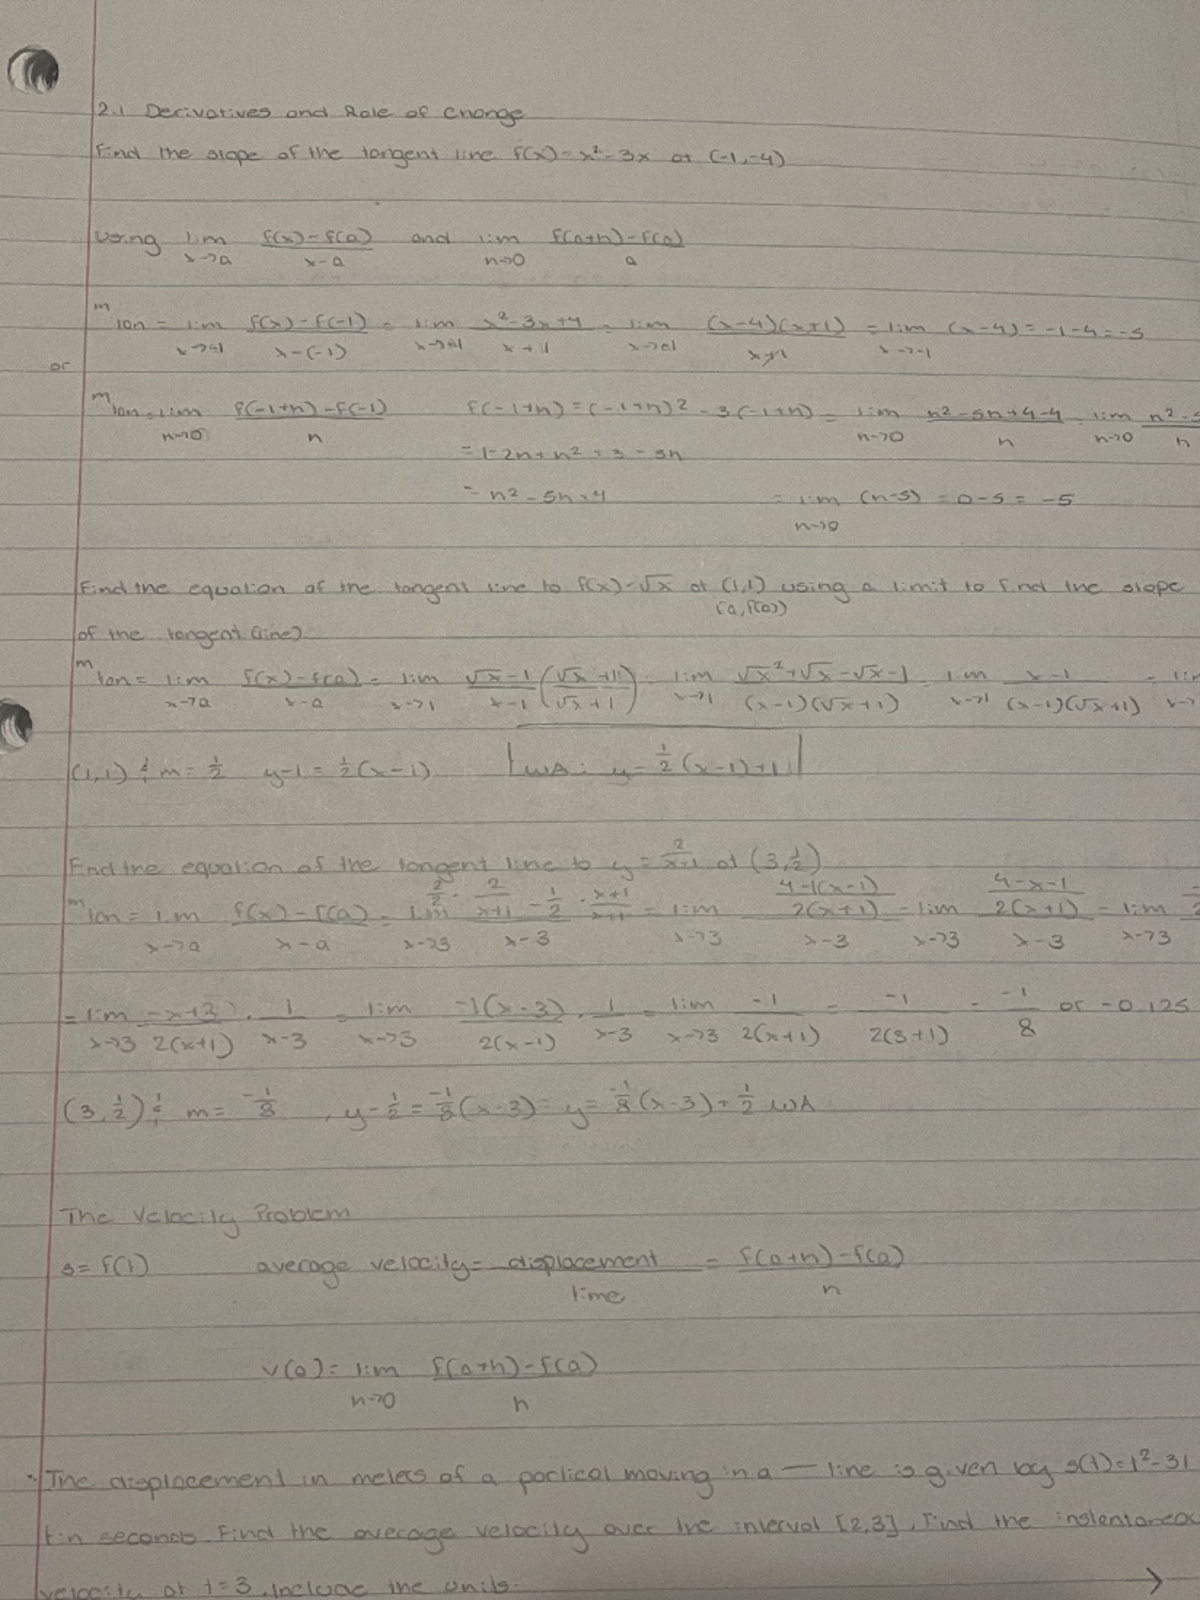 2.1 Derivatives and Rate of Change
Find the slope of the tangent line f(x)=x²-3x at (-1,-4)
Using lim x→a (f(x)-f(a))/(x-a) and lim h→0 (f(a+h)-f(a))/a
m tan = lim x→-1 (f(x)-f(-1))/(x-(-1)) = lim x→-1 (x²-3x+4)/(x+1) = lim x→-1 ((x-4)(x+1))/(x+1) = lim x→-1 (x-4) = -1-4 = -5
or
m tan = lim h→0 (f(-1+h)-f(-1))/h f(-1+h) = (-1+h)² - 3(-1+h) = lim h→0 (h²-5h+4-4)/h = lim h→0 h²-5/h
= 1-2h+h²+3-3h
= h²-5h+4 = lim h→0 (h-5) = 0-5 = -5
Find the equation of the tangent line to f(x)=√x at (1,1) using a limit to find the slope
(a,f(a))
of the tangent line)
m tan = lim x→a (f(x)-f(a))/(x-a) = lim x→1 (√x-1)/(x-1) ((√x+1)/(√x+1)) = lim x→1 (√x²+√x-√x-1)/((x-1)(√x+1)) = lim x→1 (x-1)/((x-1)(√x+1)) = lim x→
(1,1) & m=1/2 y-1=1/2(x-1) WA: y=1/2(x-1)+1
Find the equation of the tangent line to y=2/(x+1) at (3,1/2)
m tan = lim x→a (f(x)-f(a))/(x-a) = lim x→3 (2/2 · 2/(x+1) - 1/2 · (x+1)/(x+1))/(x-3) = lim x→3 ((4-1(x-1))/(2(x+1)))/(x-3) = lim x→3 ((4-x-1)/(2(x+1)))/(x-3) = lim x→3
= lim x→3 (-x+3)/(2(x+1)) · 1/(x-3) = lim x→3 (-1(x-3))/(2(x-1)) · 1/(x-3) = lim x→3 -1/(2(x+1)) = -1/(2(3+1)) = -1/8 or -0.125
(3,1/2) & m=-1/8, y-1/2=-1/8(x-3) = y=-1/8(x-3)+1/2 WA
The Velocity Problem
s=f(t) average velocity = displacement/time = (f(a+h)-f(a))/h
v(a) = lim h→0 (f(a+h)-f(a))/h
·The displacement in meters of a partical moving in a — line is given by s(t)=t²-3t
t in seconds. Find the average velocity over the interval [2,3]. Find the instentaneou
velocity at t=3. Include the units. →